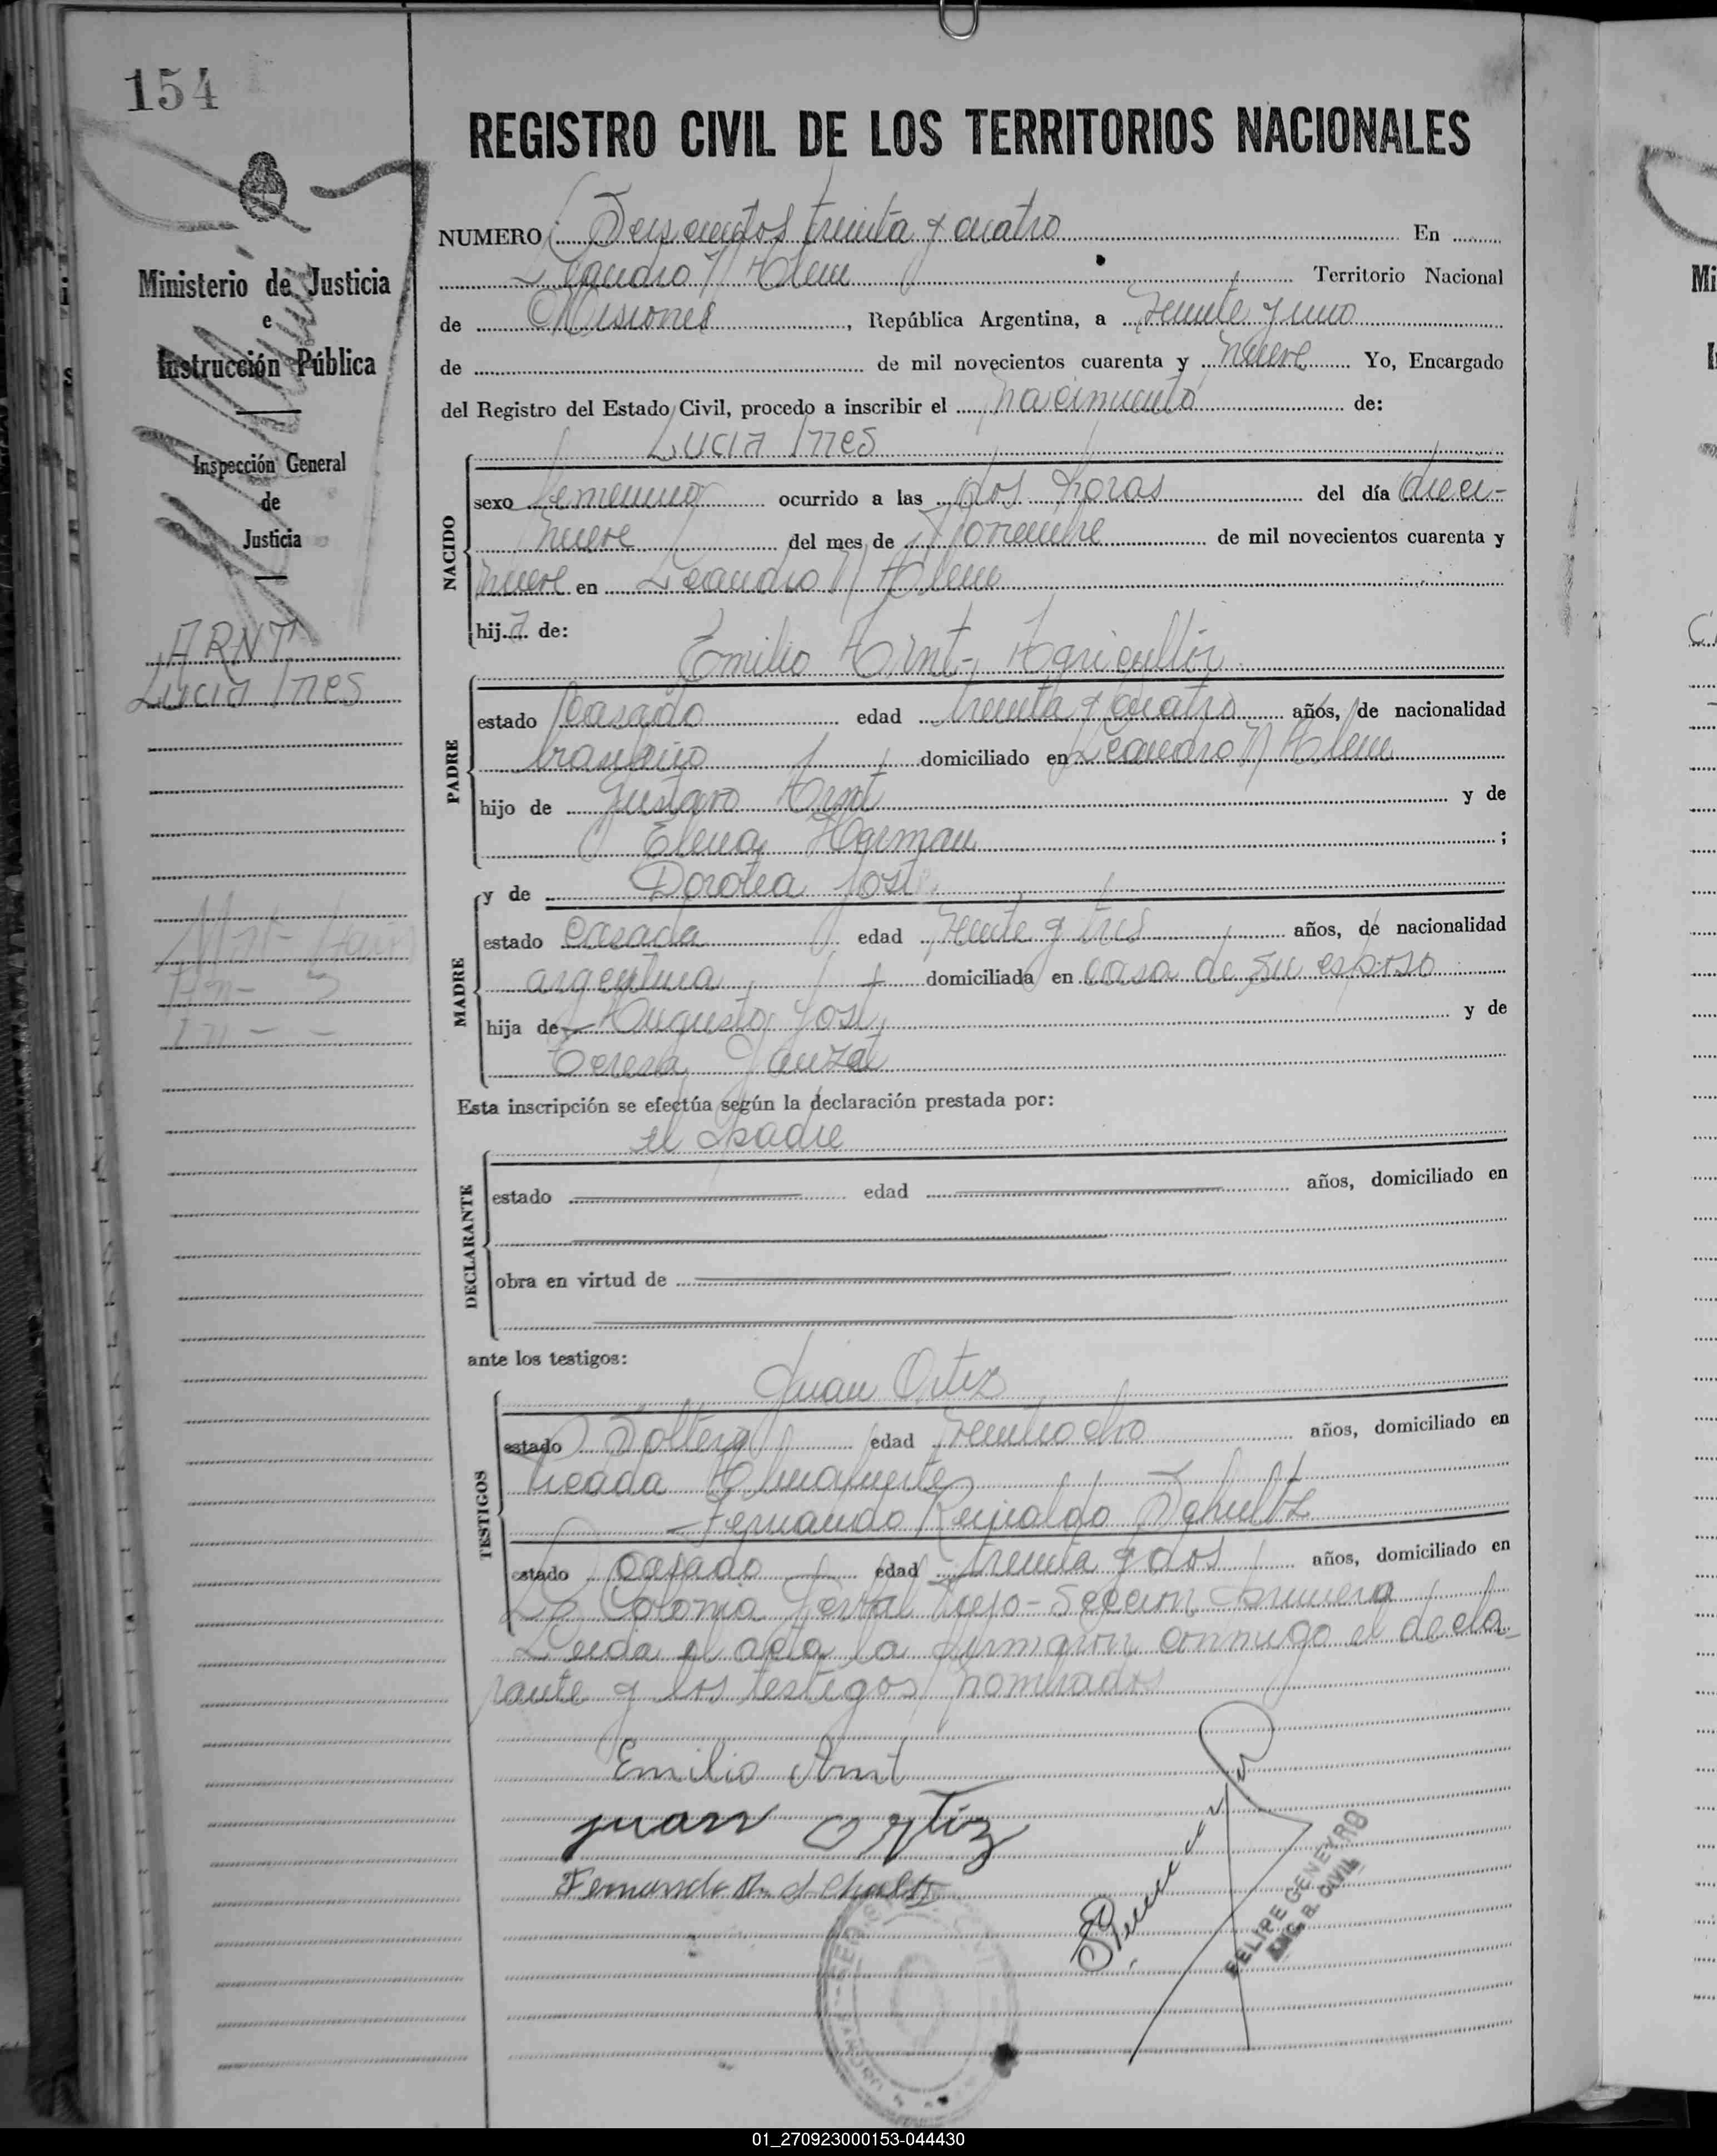 154
REGISTRO CIVIL DE LOS TERRITORIOS NACIONALES
NUMERO Seiscientos treinta y cuatro En
Leandro N Alem Territorio Nacional
de Misiones, República Argentina, a Veinte y uno
de de mil novecientos cuarenta y nueve Yo, Encargado
del Registro del Estado Civil, procedo a inscribir el nacimiento de:
Lucia Ines
NACIDO
sexo femenino ocurrido a las dos horas del día dieci-
nueve del mes de Noviembre de mil novecientos cuarenta y
nueve en Leandro N Alem
hija de:
Emilio Arnt- Agricultor
PADRE
estado Casado edad treinta y cuatro años, de nacionalidad
domiciliado en Leandro N Alem
hijo de Gustavo Arnt y de
Elena Herman ;
y de Dorotea Jost
MADRE
estado Casada edad Veinte y tres años, de nacionalidad
argentina domiciliada en casa de su esposo
hija de Augusto Jost y de
Teresa
Esta inscripción se efectúa según la declaración prestada por:
el padre
DECLARANTE
estado edad años, domiciliado en
obra en virtud de
ante los testigos:
Juan Ortiz
TESTIGOS
estado Soltero edad Veintiocho años, domiciliado en
Picada Almafuerte
Fernando Reinaldo Schultz
estado Casado edad treinta y dos años, domiciliado en
Colonia Cerro Seccion Primera
Leida el acta la firmaron conmigo el decla-
rante y los testigos nombrados
Emilio Arnt
juan ortiz
Fernando R. Schultz
FELIPE GENEYRO
ENC. R. CIVIL
Ministerio de Justicia
e
Instrucción Pública
Inspección General
de
Justicia
ARNT
Lucia Ines
01_270923000153-044430